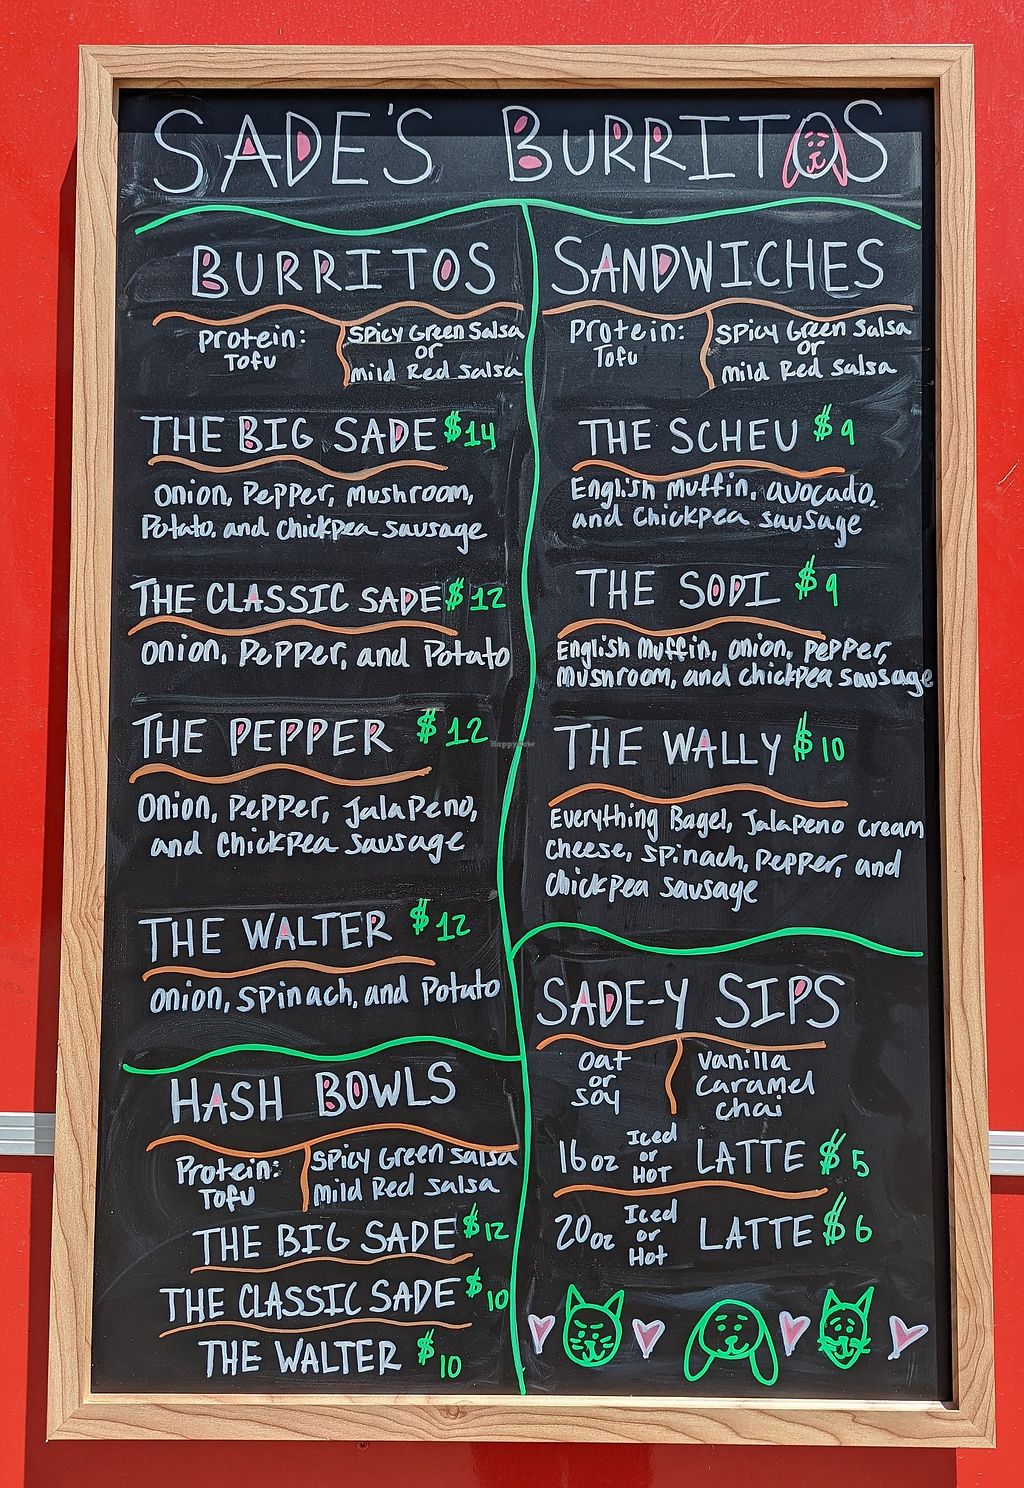 SADE'S BURRITOS
BURRITOS
Protein:
Tofu
Spicy Green Salsa
or
mild Red Salsa
THE BIG SADE $14
Onion, Pepper, Mushroom,
Potato, and Chickpea Sausage
THE CLASSIC SADE $12
Onion, Pepper, and Potato
THE PEPPER $12
Onion, Pepper, Jalapeno,
and Chickpea Sausage
THE WALTER $12
Onion, Spinach, and Potato
HASH BOWLS
Protein:
Tofu
Spicy Green Salsa
Mild Red Salsa
THE BIG SADE $12
THE CLASSIC SADE $10
THE WALTER $10
SANDWICHES
Protein:
Tofu
Spicy Green Salsa
or
Mild Red Salsa
THE SCHEU $9
English Muffin, avocado,
and Chickpea Sausage
THE SODI $9
English Muffin, onion, Pepper,
Mushroom, and Chickpea Sausage
THE WALLY $10
Everything Bagel, Jalapeno cream
Cheese, Spinach, Pepper, and
Chickpea Sausage
SADE-Y SIPS
Oat
or
Soy
Vanilla
Caramel
Chai
16oz Iced or HOT LATTE $5
20oz Iced or Hot LATTE $6
HappyCow